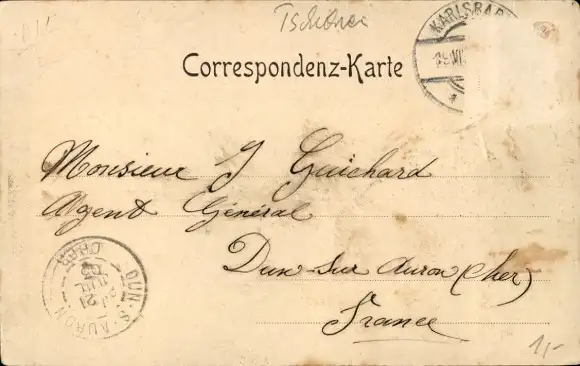 KARLSBAD
Correspondenz-Karte
Monsieur J Guichard
Agent Général
Dun-sur Auron (Cher)
France
DUN-S-AURON
CHER
21
1,-